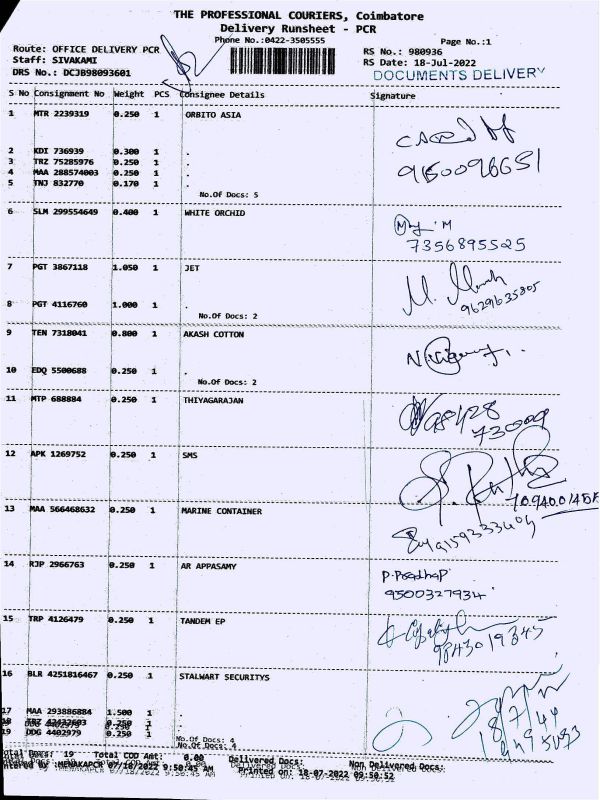 THE PROFESSIONAL COURIERS, Coimbatore
Delivery Runsheet - PCR
Phone No.:0422-3505555
Page No.:1
Route: OFFICE DELIVERY PCR
RS No.: 980936
Staff: SIVAKAMI
RS Date: 18-Jul-2022
DRS No.: DCJB98093601
DOCUMENTS DELIVERY
S No Consignment No Weight PCS Consignee Details Signature
1 MTR 2239319 0.250 1 ORBITO ASIA
2 KDI 736939 0.300 1 .
3 TRZ 75285976 0.250 1 .
4 MAA 288574003 0.250 1 .
5 TNJ 832770 0.170 1 .
9150096651
No.Of Docs: 5
6 SLM 299554649 0.400 1 WHITE ORCHID
7356895525
7 PGT 3867118 1.050 1 JET
8 PGT 4116760 1.000 1 .
9629635805
No.Of Docs: 2
9 TEN 7318041 0.800 1 AKASH COTTON
10 EDQ 5500688 0.250 1 .
No.Of Docs: 2
11 MTP 688884 0.250 1 THIYAGARAJAN
98428
73009
12 APK 1269752 0.250 1 SMS
13 MAA 566468632 0.250 1 MARINE CONTAINER
9159333404
14 RJP 2966763 0.250 1 AR APPASAMY
9500327934
15 TRP 4126479 0.250 1 TANDEM EP
9843019345
16 BLR 4251816467 0.250 1 STALWART SECURITYS
17 MAA 293886884 1.500 1 .
18 TRZ 42432603 0.250 1 .
19 DDG 4402979 0.250 1 .
No.Of Docs: 4
Total Docs: 19 Total COD Amt: 0.00 Delivered Docs: Non Delivered Docs:
Entered By :MENAKAPCR 07/18/2022 9:50:45 AM Printed on: 18-07-2022 09:50:52